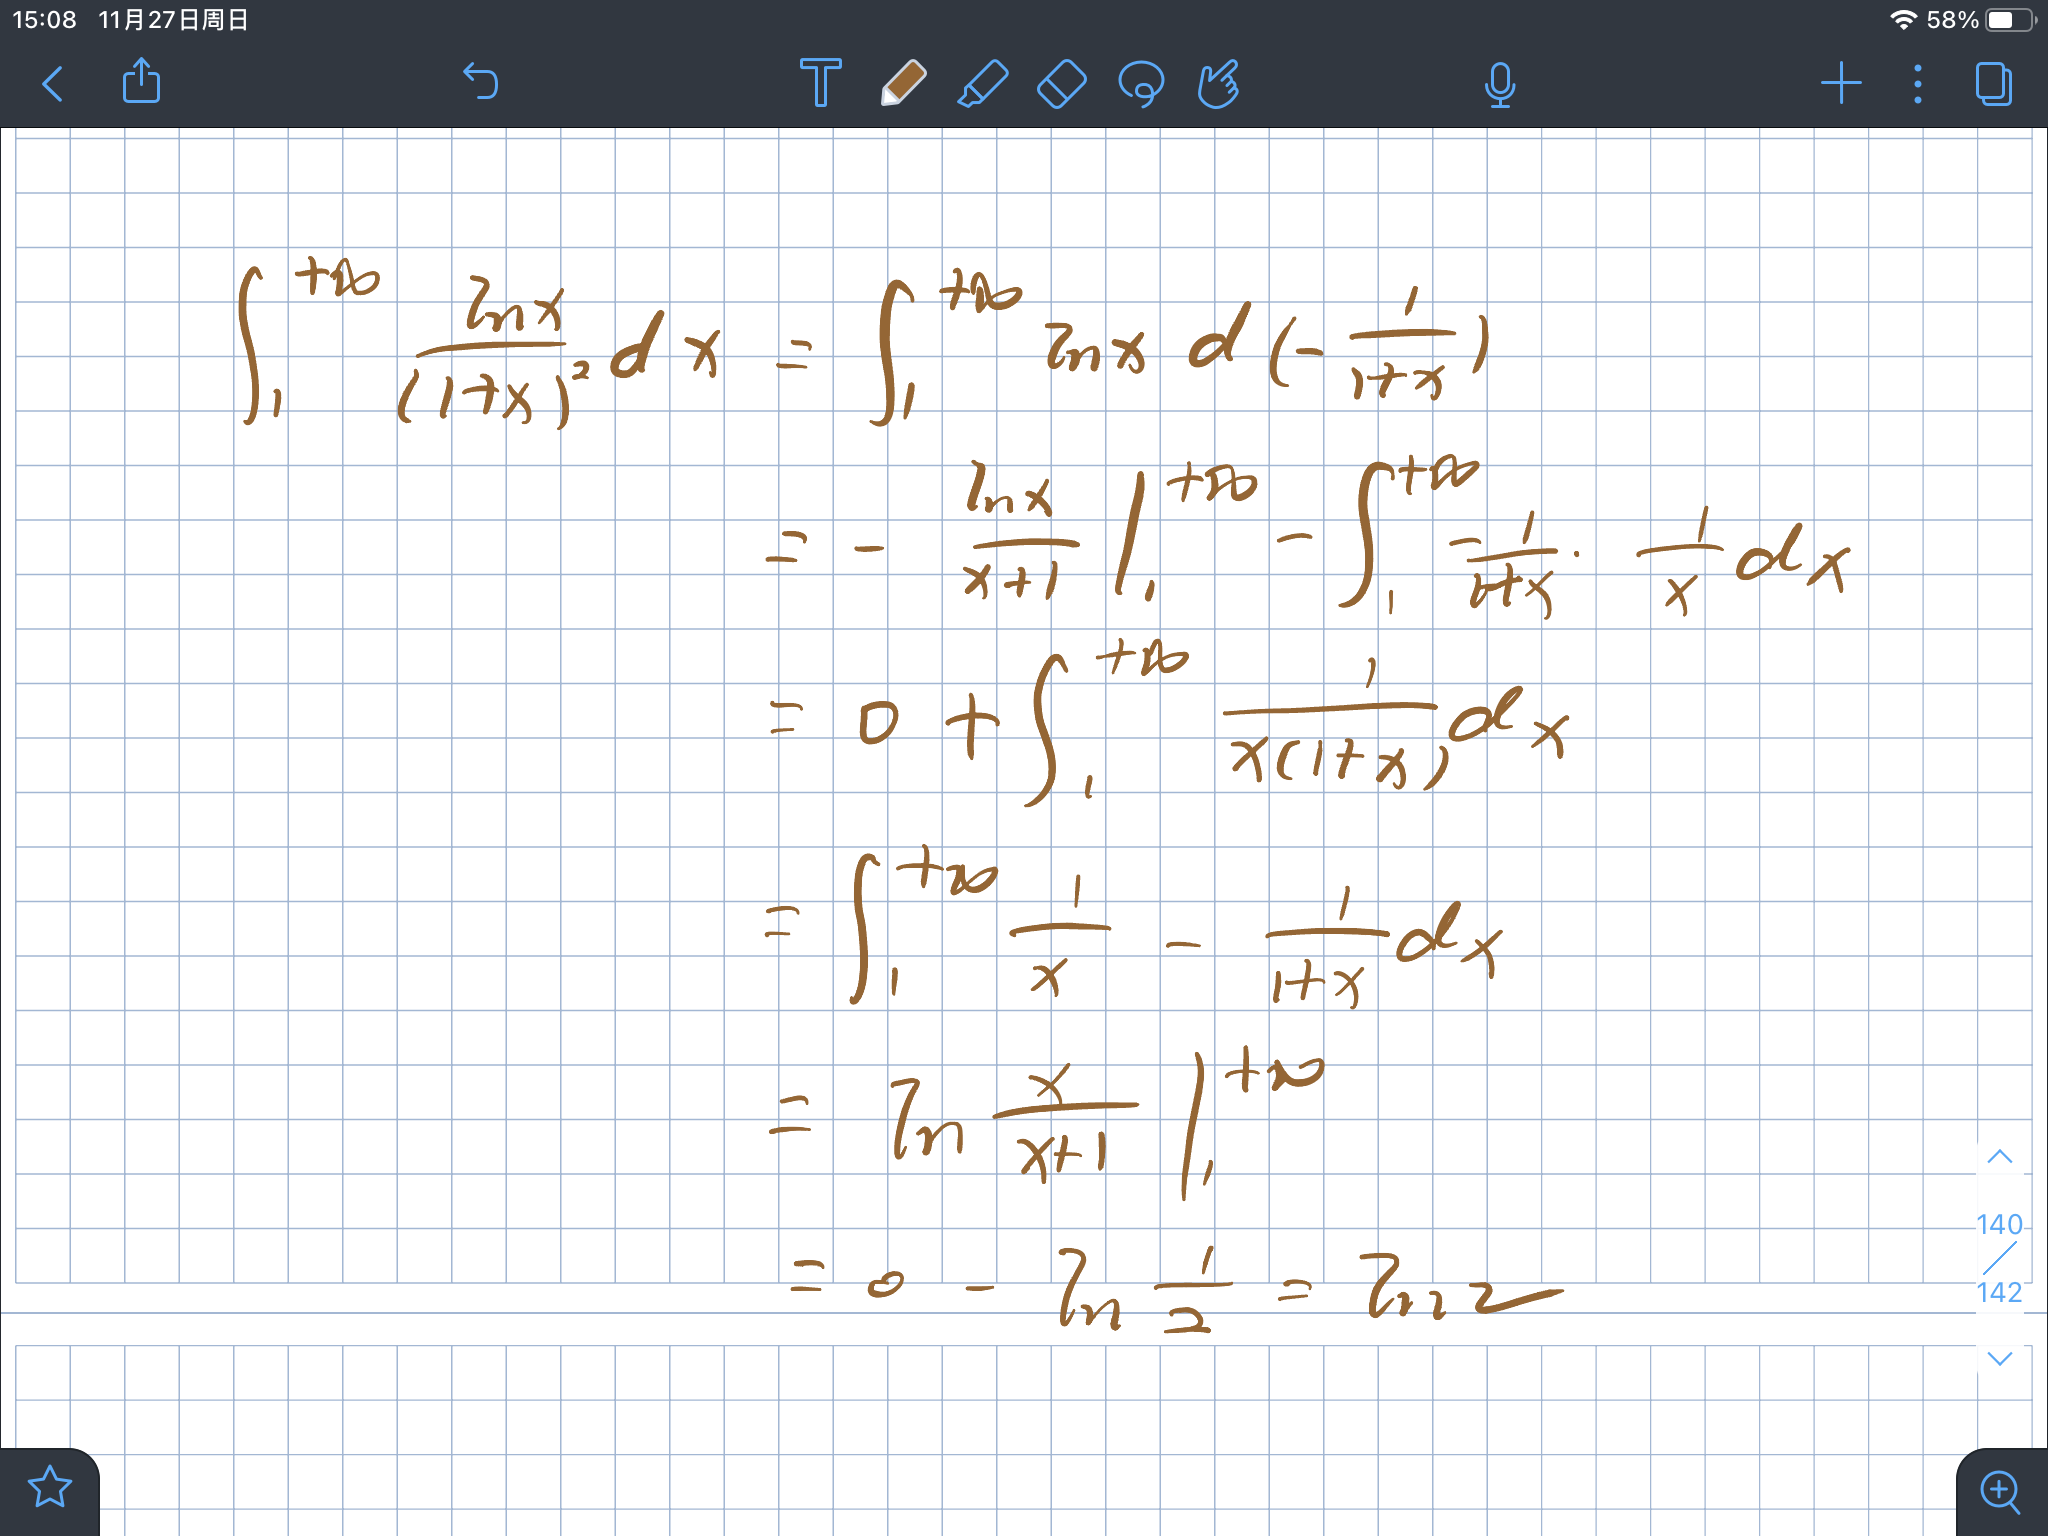 15:08 11月27日周日 58%
T
∫₁^{+∞} lnx/(1+x)² dx = ∫₁^{+∞} lnx d(-1/(1+x))
= - lnx/(x+1) |₁^{+∞} - ∫₁^{+∞} -1/(1+x) · 1/x dx
= 0 + ∫₁^{+∞} 1/(x(1+x)) dx
= ∫₁^{+∞} 1/x - 1/(1+x) dx
= ln x/(x+1) |₁^{+∞}
= 0 - ln 1/2 = ln2
140
/
142